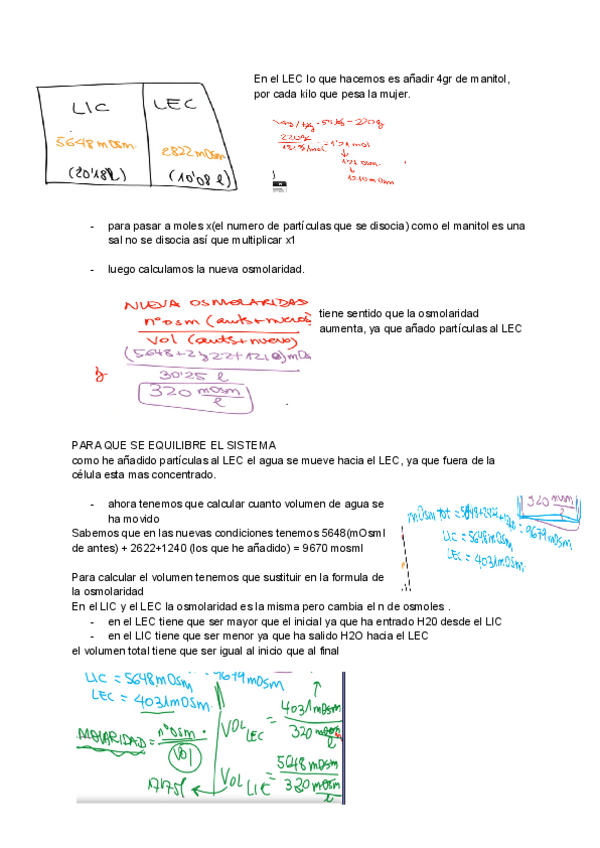 En el LEC lo que hacemos es añadir 4gr de manitol,
por cada kilo que pesa la mujer.
LIC
LEC
5648 mOsm
2822 mOsm
(20'18 l)
(10'08 l)
220g
- para pasar a moles x(el numero de partículas que se disocia) como el manitol es una
sal no se disocia así que multiplicar x1
- luego calculamos la nueva osmolaridad.
NUEVA OSMOLARIDAD
nºosm (ants+nuevos
Vol (ants+nuevo)
30'25 l
320 mOsm/l
tiene sentido que la osmolaridad
aumenta, ya que añado partículas al LEC
PARA QUE SE EQUILIBRE EL SISTEMA
como he añadido partículas al LEC el agua se mueve hacia el LEC, ya que fuera de la
célula esta mas concentrado.
- ahora tenemos que calcular cuanto volumen de agua se
ha movido
Sabemos que en las nuevas condiciones tenemos 5648(mOsml
de antes) + 2622+1240 (los que he añadido) = 9670 mosml
320 mosm/l
mOsm tot =
= 9679 mOsm
LIC = 5648 mOsm
LEC = 4031 mOsm
Para calcular el volumen tenemos que sustituir en la formula de
la osmolaridad
En el LIC y el LEC la osmolaridad es la misma pero cambia el n de osmoles .
- en el LEC tiene que ser mayor que el inicial ya que ha entrado H20 desde el LIC
- en el LIC tiene que ser menor ya que ha salido H2O hacia el LEC
el volumen total tiene que ser igual al inicio que al final
LIC = 5648 mOsm
= 9679 mOsm
LEC = 4031 mOsm
MOLARIDAD = nºosm / Vol
VOL LEC = 4031 mOsm / 320 mosm/l
VOL LIC = 5648 mOsm / 320 mOsm/l